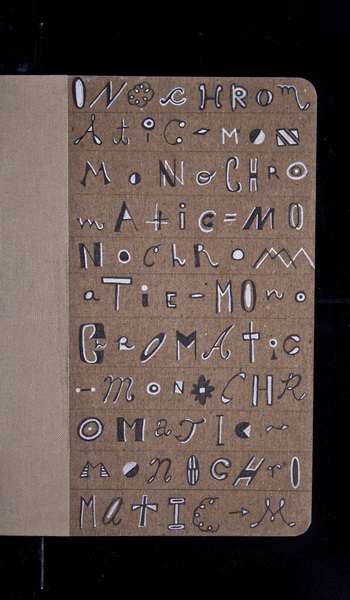 ONOCHROM
ATIC-MON
MONOCHRO
mATiC=MO
NOCHROM
aTiC-MONo
CHROMATIC
-MONOCHR
OMATIC~
MONOCHRO
MATIC-M